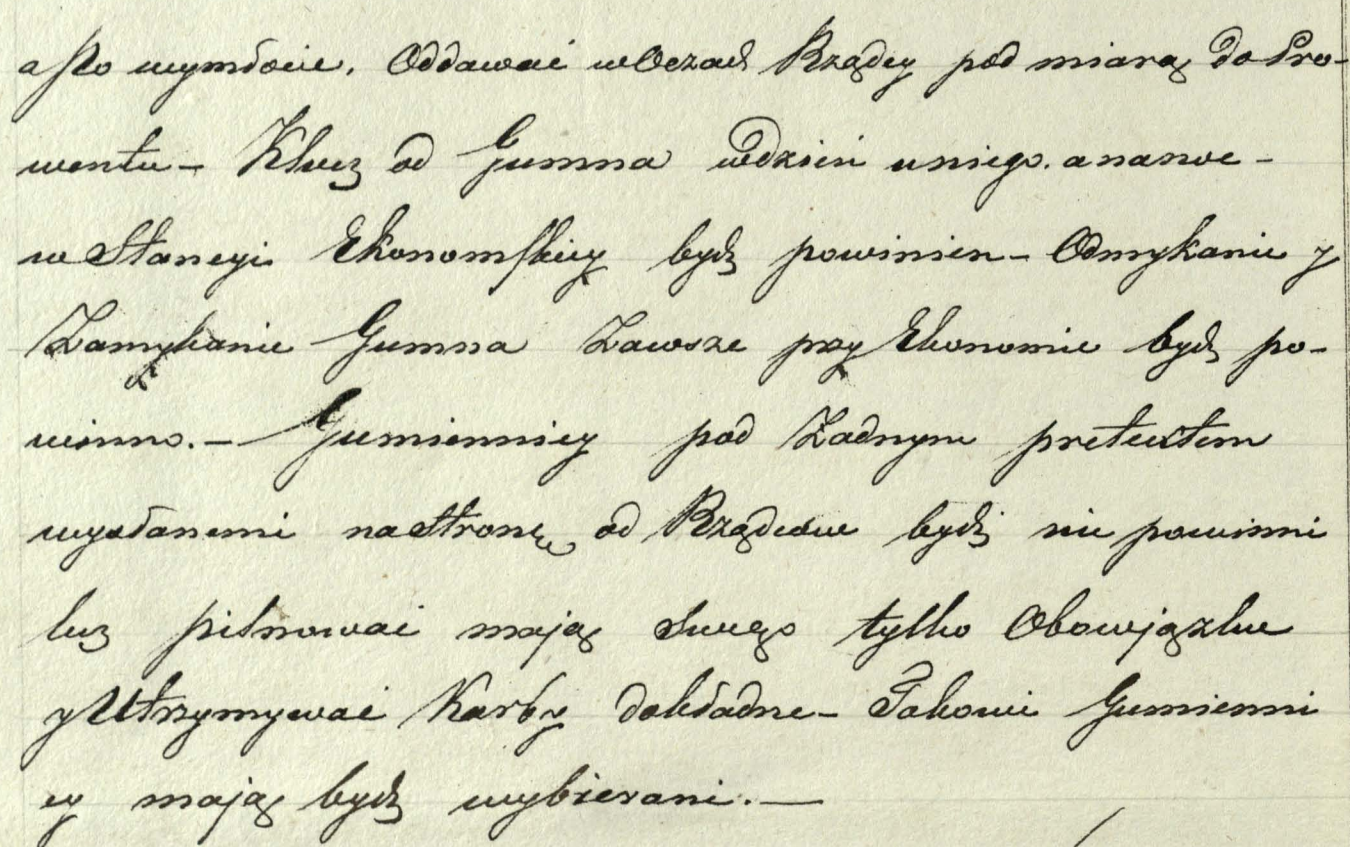 a po wymłocie, Oddawać w Oczach Rządcy pod miarą do Pro-
wentu – Klucz od Gumna wdzień uniego. a nanoc –
w Stancyi Ekonomskiey bydź powinien – Odmykanie y
Zamykanie Gumna Zawsze przy Ekonomie bydź po-
winno. – Gumienniey pod Żadnym pretextem
wysłanemi na Stronę od Rządców bydź nie powinni
lecz pilnować mają swego tylko Obowjązku
y Utrzymywać Karby dokładne – Takowi Gumienni
cy mają bydź wybierani. –